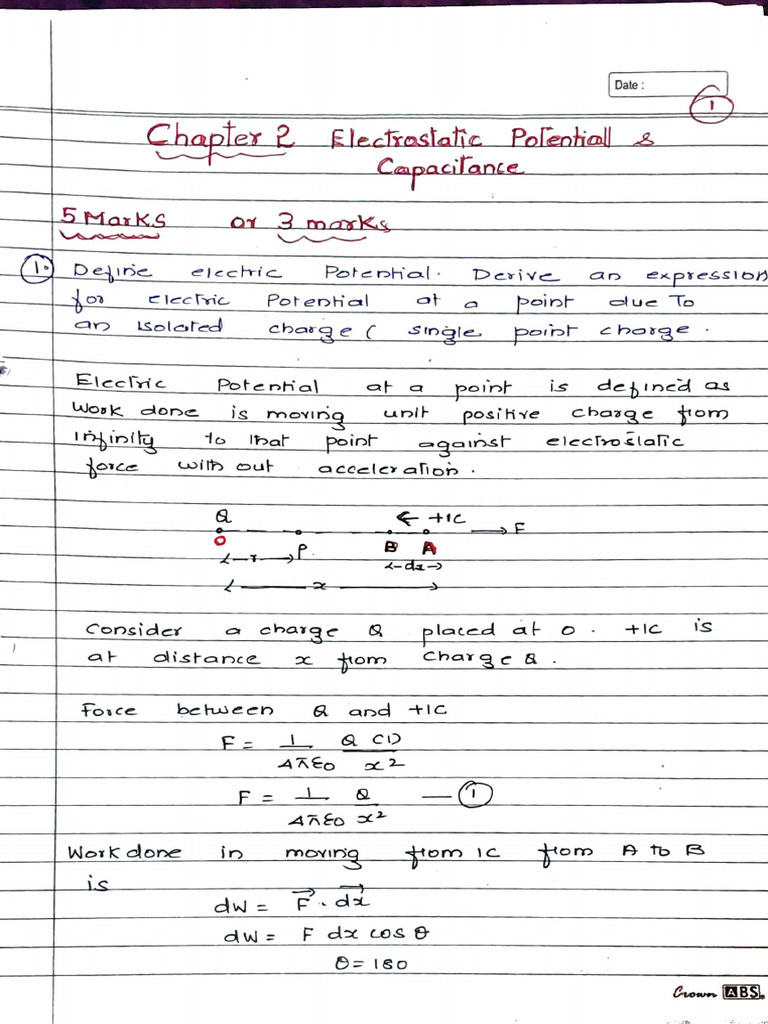 Date :
1
Chapter 2 Electrostatic Potentiall &
Capacitance
5 Marks or 3 marks
1. Define electric Potential. Derive an expression
for electric Potential at a point due to
an isolated charge ( single point charge .
Electric Potential at a point is defined as
work done is moving unit positive charge from
infinity to that point against electrostatic
force with out acceleration .
Q ← +1C → F
O P B A
r dx
x
Consider a charge Q placed at O . +1C is
at distance x from charge Q .
Force between Q and +1C
F = 1/4πε0 Q (1)/x²
F = 1/4πε0 Q/x² — 1
Work done in moving from 1C from A to B
is
dW = F⃗ . dx⃗
dW = F dx cos θ
θ = 180
Crown ABS.